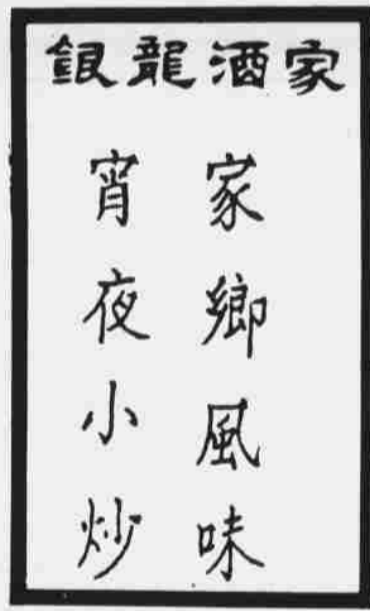 銀龍酒家
家鄉風味
宵夜小炒